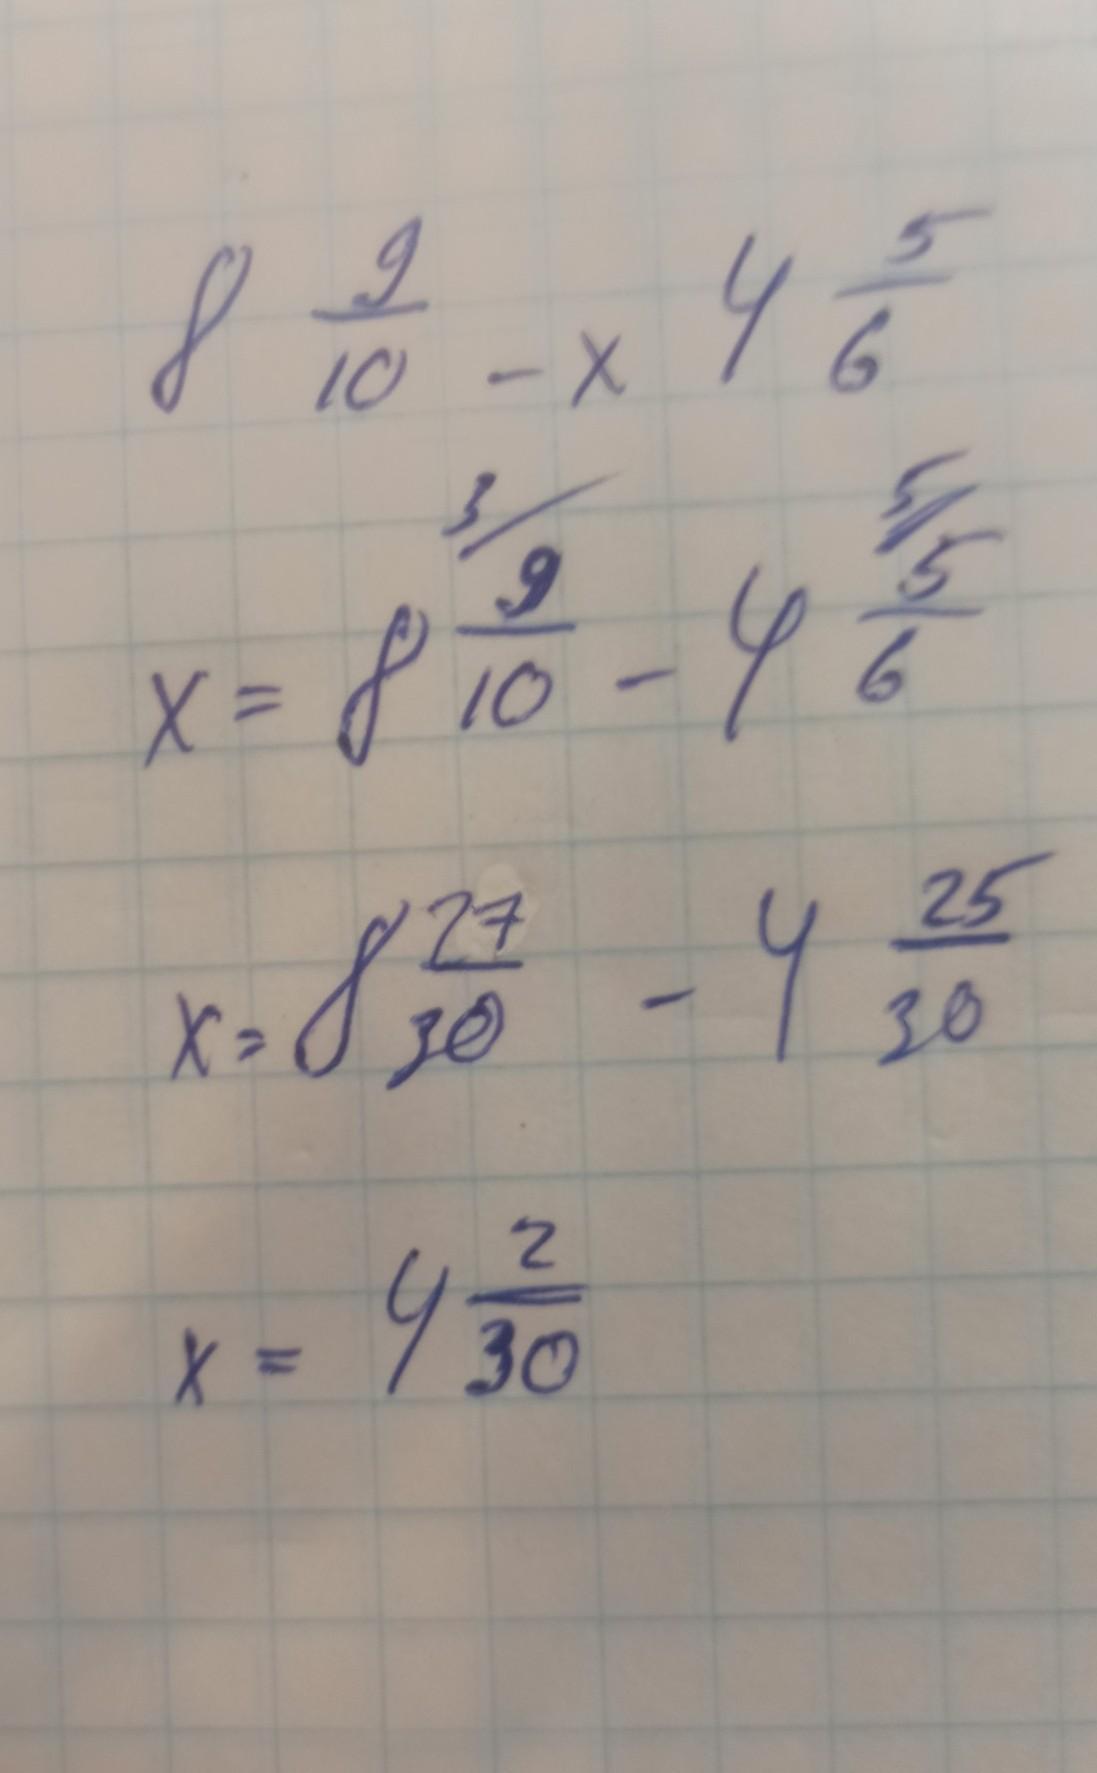 8 9/10 - x 4 5/6
x = 8 9/10 3/ - 4 5/6 5/
x = 8 27/30 - 4 25/30
x = 4 2/30